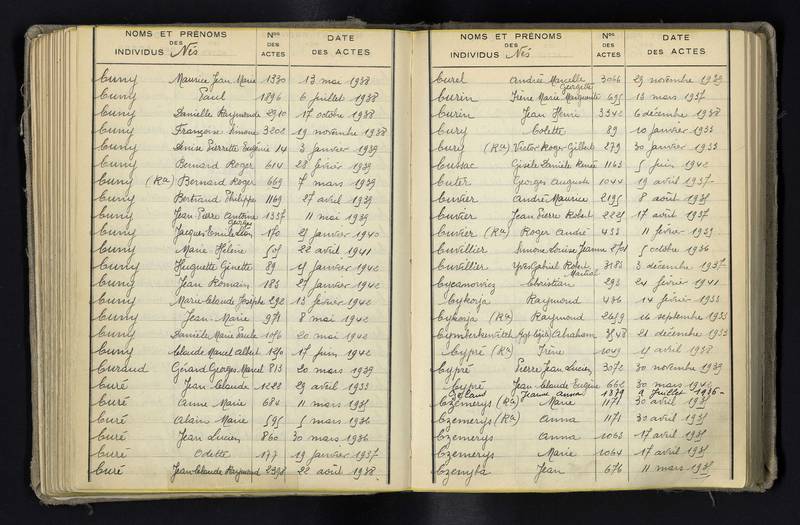 NOMS ET PRÉNOMS
DES
INDIVIDUS Nés
Nos
DES
ACTES
DATE
DES ACTES
Cuny Maurice Jean Marie 1330 13 mai 1938
Cuny Paul 1896 6 juillet 1938
Cuny Danielle Raymonde 2910 17 octobre 1938
Cuny Françoise Simone 3202 19 novembre 1938
Cuny Denise Pierrette Eugénie 14 3 janvier 1939
Cuny Bernard Roger 614 28 février 1939
Cuny (Ron) Bernard Roger 669 7 mars 1939
Cuny Bertrand Philippe 1169 27 avril 1939
Cuny Jean Pierre Antoine 1337 11 mai 1939
Georges
Cuny Jacques 170 janvier 1940
Cuny Marie Hélène 22 avril 1941
Cuny Huguette Ginette 89 janvier 1942
Cuny Jean Romain 183 27 janvier 1942
Cuny Marie Claude Josephe 292 13 février 1942
Cuny Jean Marie 971 8 mai 1942
Cuny Danièle Marie Paule 1076 20 mai 1942
Cuny Claude Marcel Albert 17 juin 1942
Curaud Gérard Georges Marcel 813 20 mars 1939
Curé Jean Claude 1228 29 avril 1933
Curé Anne Marie 684 11 mars
Curé Alain Marie 595 5 mars 1936
Curé Jean Lucien 860 30 mars 1936
Curé Odette 177 19 janvier 1937
Curé Jean Claude Raymond 22 août 1938
NOMS ET PRÉNOMS
DES
INDIVIDUS Nés
Nos
DES
ACTES
DATE
DES ACTES
Curel André Marcelle 3066 29 novembre 1939
Georgette
Curin Irène Marie Marguerite 695 13 mars 1937
Curin Jean Henri 6 décembre 1938
Cury Colette 89 10 janvier 1933
Cury Victor Roger Gilbert 279 30 janvier 1933
Cussac Gisèle Danièle Renée 1163 5 juin 1942
Cuter Georges Auguste 1044 19 avril 1937
Cuvier André Maurice 2195 8 août
Cuvier Jean Pierre Robert 17 avril 1937
Cuvier Roger André 433 11 février 1939
Cuvillier Simone Louise Jeanne 5 octobre 1936
Cuvillier Yves Gabriel Robert 3183 3 décembre 1937
Martial
Cycanovicz Christian 293 24 février 1941
Cykorja Raymond 436 14 février 1933
Cykorja Raymond 16 septembre 1933
Abraham 21 décembre 1933
Cypré Irène 1049 avril 1938
Cypré Pierre Jean Lucien 3072 30 novembre 1939
Cypré Jean Claude Eugène 662 30 mars 1942
Jeanne Anna 1879 Juillet 1936
Czemerys Marie 1171 30 avril
Czemerys Anna 1171 30 avril
Czemerys Anna 1063 17 avril
Czemerys Marie 1064 17 avril
Jean 676 11 mars